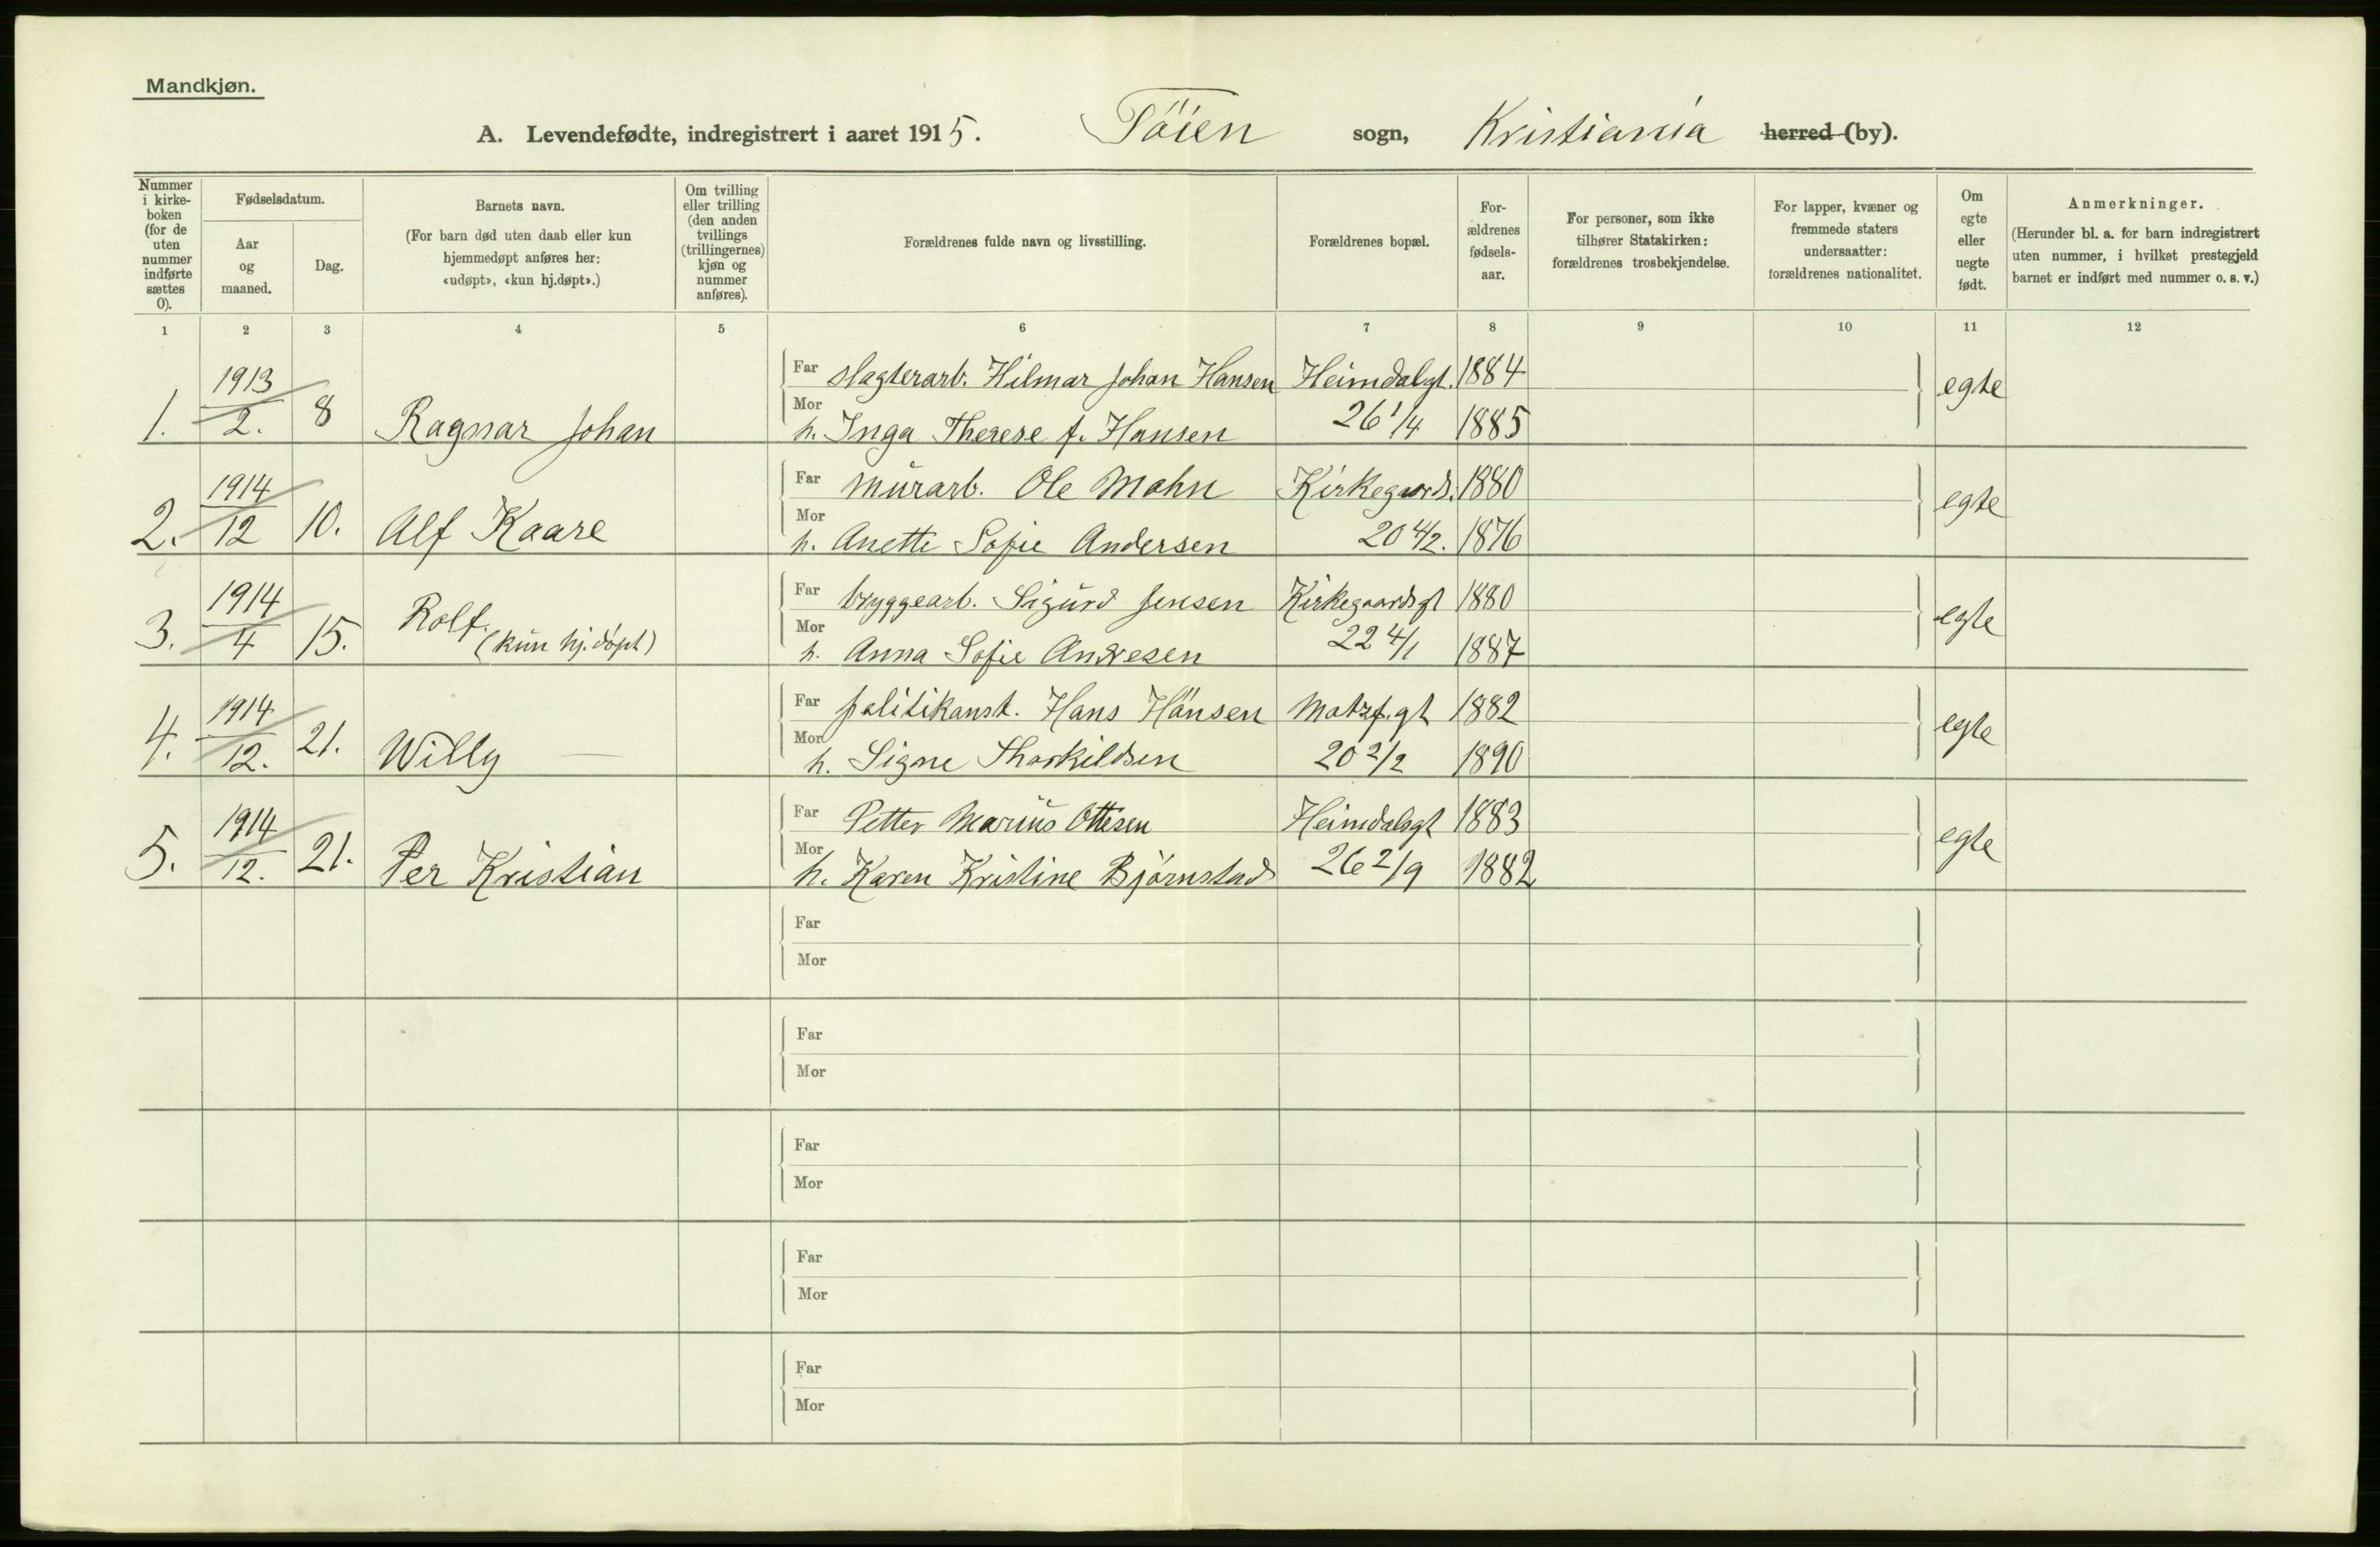 Mandkjøn.
A. Levendefødte, indregistrert i aaret 1915. Töien sogn, Kristiania herred (by).
Nummer i kirke-boken (for de uten nummer indførte sættes 0).
Fødselsdatum.
Aar og maaned.
Dag.
Barnets navn.
(For barn død uten daab eller kun hjemmedøpt anføres her: «udøpt», «kun hj.døpt».)
Om tvilling eller trilling (den anden tvillings (trillingernes) kjøn og nummer anføres).
Forældrenes fulde navn og livsstilling.
Forældrenes bopæl.
For-ældrenes fødsels-aar.
For personer, som ikke tilhører Statskirken: forældrenes trosbekjendelse.
For lapper, kvæner og fremmede staters undersaatter: forældrenes nationalitet.
Om egte eller uegte født.
Anmerkninger.
(Herunder bl. a. for barn indregistrert uten nummer, i hvilket prestegjeld barnet er indført med nummer o. s. v.)
1 2 3 4 5 6 7 8 9 10 11 12
1913 Far slagterarb. Hilmar Johan Hansen Heimdalgt. 1884 egte
1. 2. 8 Ragnar Johan Mor h. Inga Therese f. Hansen 26 1/4 1885
1914 Far murarb. Ole Mohn Kirkegaards. 1880 egte
2. 12 10. Alf Kaare Mor h. Anette Sofie Andersen 20 4/2. 1876
1914 Far bryggearb. Sigurd Jensen Kirkegaardsgt 1880 egte
3. 4 15. Rolf. (kun hj. døpt) Mor h. Anna Sofie Andresen 22 4/1 1887
1914 Far politikonst. Hans Hansen Motzf.gt 1882 egte
4. 12. 21. Willy Mor h. Signe Thorkildsen 20 2/2 1890
1914 Far Petter Marius Ottesen Heimdalsgt 1883 egte
5. 12. 21. Per Kristian Mor h. Karen Kristine Bjørnstad 26 2/9 1882
Far
Mor
Far
Mor
Far
Mor
Far
Mor
Far
Mor